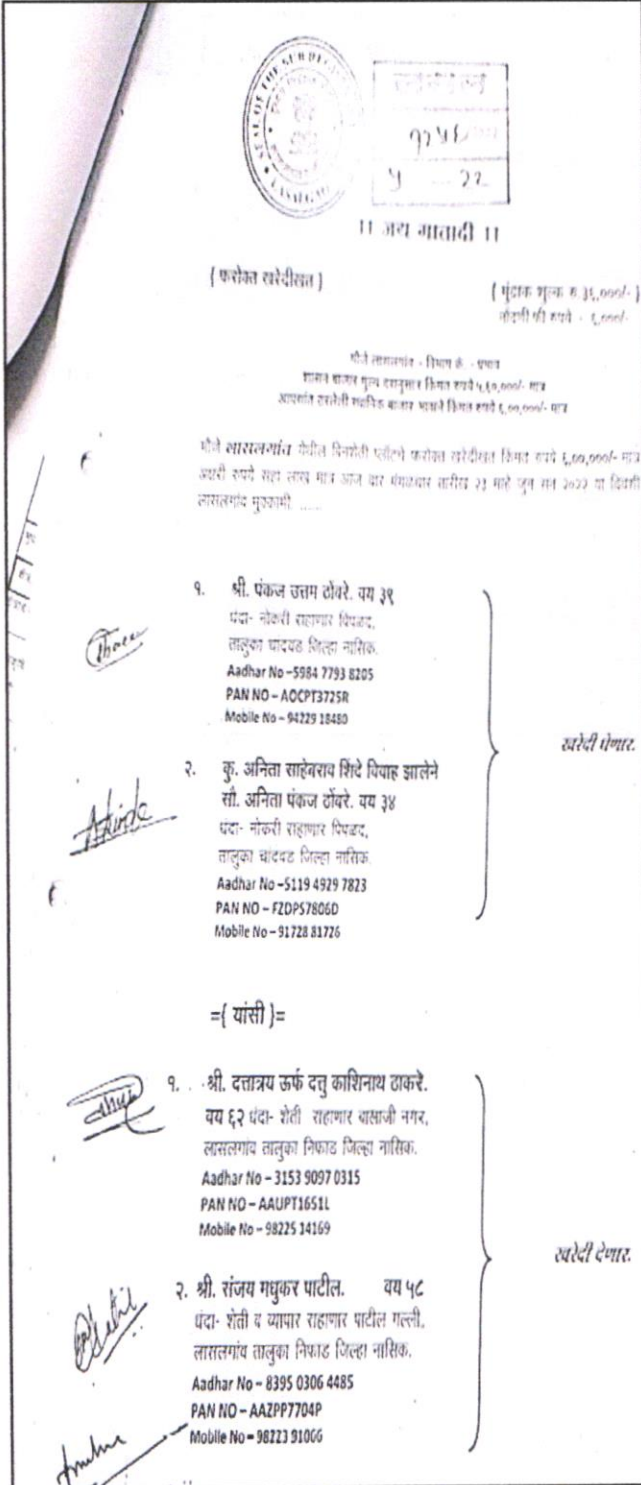 SEAL OF THE SUB REGISTRAR
LASALGAON
५ 22
।। जय मातादी ।।
{ फरोक्त खरेदीखत )
( मुंद्रांक शुल्क रु ३६,०००/- )
नोंदणी फी रुपये - ६,०००/-
मौजे लासलगांव - विभाग क्रं. -
शासन बाजार मुल्य दरानुसार किंमत रुपये ५,६०,०००/- मात्र
आपसांत ठरलेली स्थानिक बाजार भावाने किंमत रुपये ६,००,०००/- मात्र
मौजे लासलगांव येथील बिनशेती प्लॉटचे फरोक्त खरेदीखत किंमत रुपये ६,००,०००/- मात्र
अक्षरी रुपये सहा लाख मात्र आज वार मंगळवार तारीख २१ माहे जुन सन २०२२ या दिवशी
लासलगांव मुक्कामी ......
१. श्री. पंकज उत्तम ठोंबरे. वय ३९
धंदा- नोकरी राहाणार पिंपळद,
तालुका चांदवड जिल्हा नासिक.
Aadhar No –5984 7793 8205
PAN NO – AOCPT3725R
Mobile No – 94229 18480
२. कु. अनिता साहेबराव शिंदे विवाह झालेने
सौ. अनिता पंकज ठोंबरे. वय ३४
धंदा- नोकरी राहाणार पिंपळद,
तालुका चांदवड जिल्हा नासिक.
Aadhar No –5119 4929 7823
PAN NO – FZDPS7806D
Mobile No – 91728 81726
खरेदी घेणार.
={ यांसी }=
१. श्री. दत्तात्रय ऊर्फ दत्तु काशिनाथ ठाकरे.
वय ६२ धंदा- शेती राहाणार बालाजी नगर,
लासलगांव तालुका निफाड जिल्हा नासिक.
Aadhar No – 3153 9097 0315
PAN NO – AAUPT1651L
Mobile No – 98225 14169
२. श्री. संजय मधुकर पाटील. वय ५८
धंदा- शेती व व्यापार राहाणार पाटील गल्ली,
लासलगांव तालुका निफाड जिल्हा नासिक.
Aadhar No – 8395 0306 4485
PAN NO – AAZPP7704P
Mobile No – 98223 91066
खरेदी देणार.